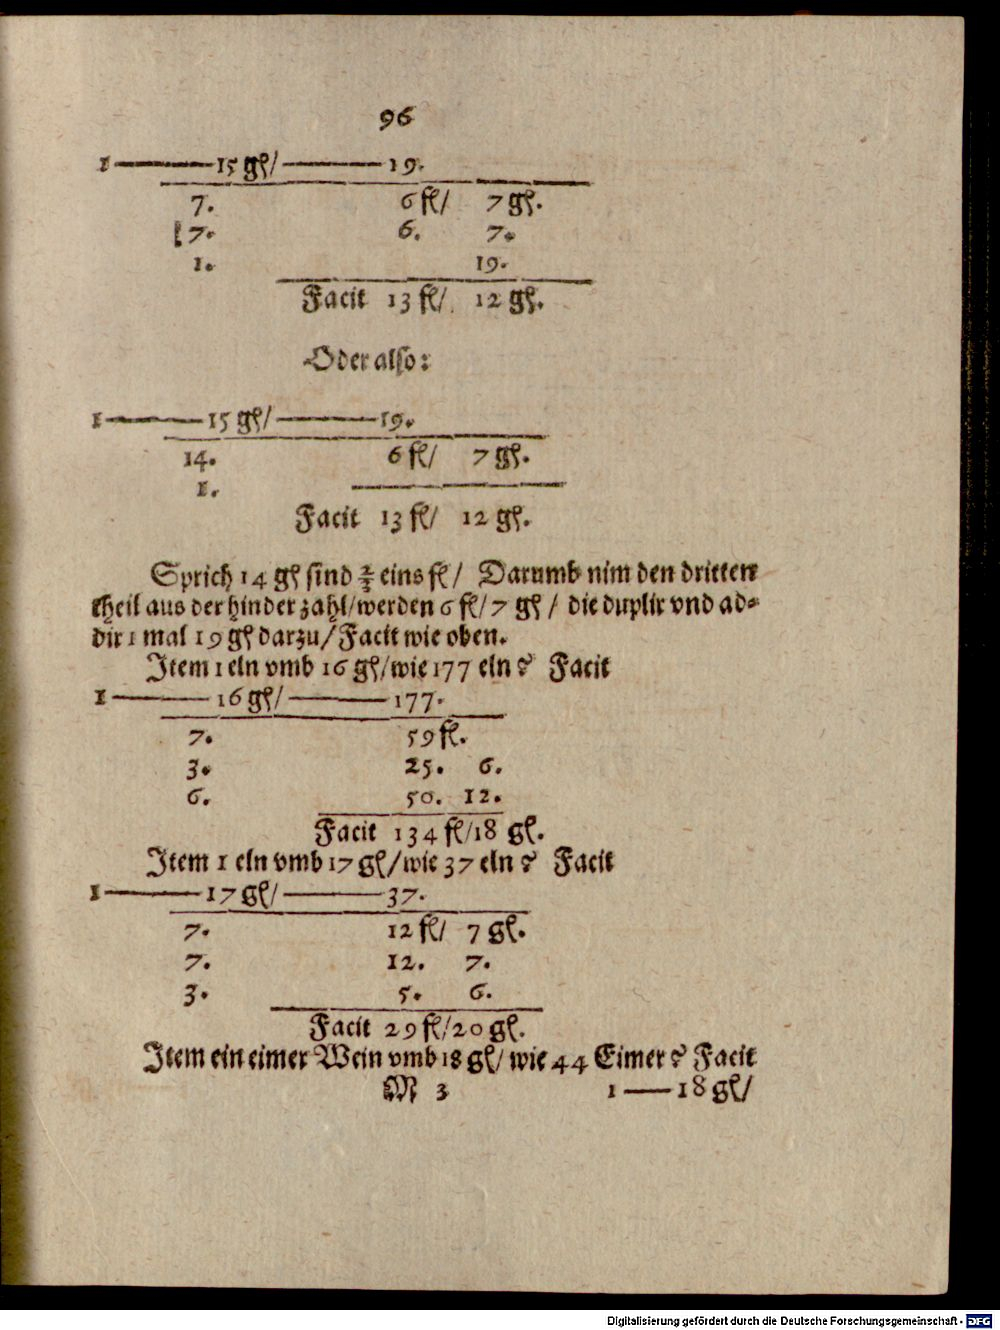 96
1——15 gſ/——19.
7. 6 fl/ 7 gſ.
7. 6. 7.
1. 19.
Facit 13 fl/ 12 gſ.
Oder alſo:
1——15 gſ/——19.
14. 6 fl/ 7 gſ.
1.
Facit 13 fl/ 12 gſ.
Sprich 14 gſ ſind ⅔ eins fl/ Darumb nim den dritten
theil aus der hinder zahl/werden 6 fl/7 gſ / die duplir vnd ad⸗
dir 1 mal 19 gſ darzu/Facit wie oben.
Item 1 eln vmb 16 gſ/wie 177 eln? Facit
1——16 gſ/——177.
7. 59 fl.
3. 25. 6.
6. 50. 12.
Facit 134 fl/18 gſ.
Item 1 eln vmb 17 gſ/wie 37 eln? Facit
1——17 gſ/——37.
7. 12 fl/ 7 gſ.
7. 12. 7.
3. 5. 6.
Facit 29 fl/20 gſ.
Item ein eimer Wein vmb 18 gſ/ wie 44 Eimer? Facit
M 3 1——18 gſ/
Digitalisierung gefördert durch die Deutsche Forschungsgemeinschaft - DFG